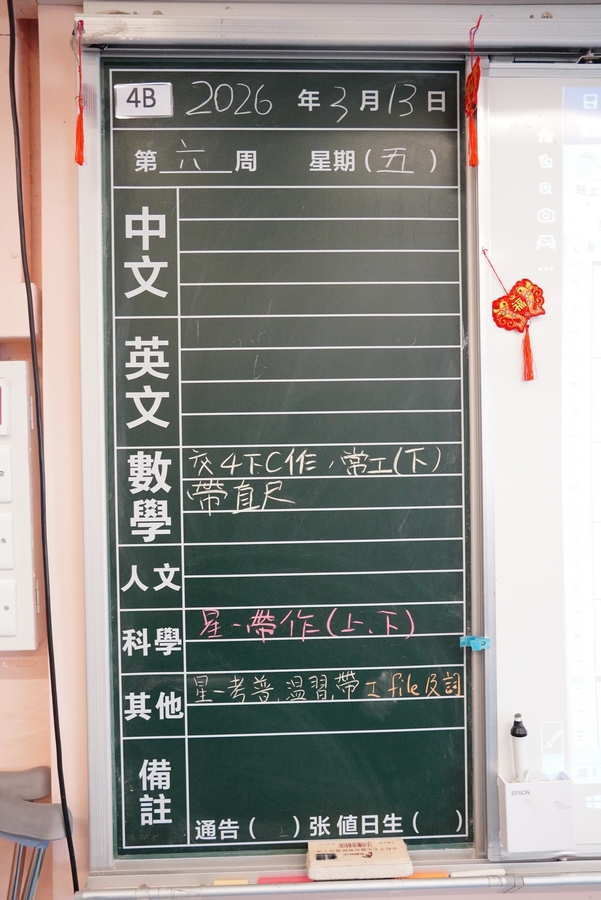 4B 2026 年 3 月 13 日
第 六 周 星期(五)
中文
英文
數學
交4下C作，常工(下)
帶直尺
人文
科學
星一帶作(上、下)
其他
星一考普,溫習,帶工file及詞
備註
通告( )张 値日生( )
福
EPSON